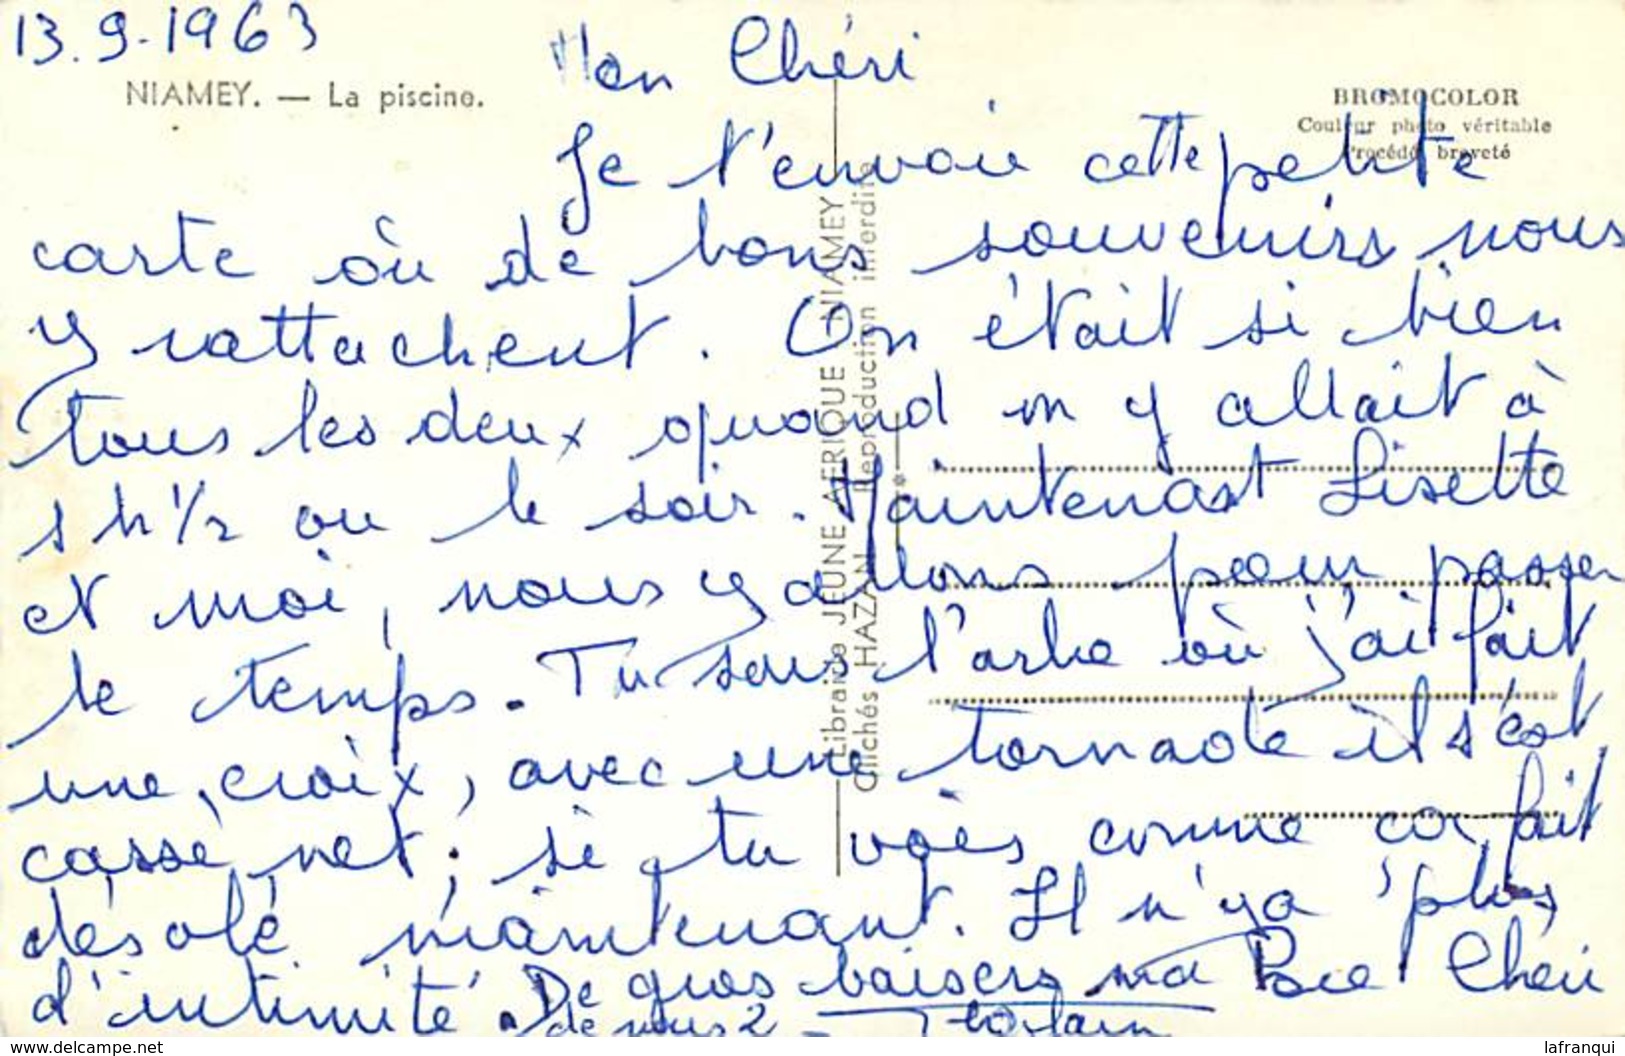 13.9.1963
NIAMEY. — La piscine.
BROMOCOLOR
Couleur photo véritable
Procédé breveté
Mon Chéri
Je t'envoie cette petite
carte où de bons souvenirs nous
y rattachent. On était si bien
tous les deux quand on y allait à
1 h 1/2 ou le soir. Maintenant Lisette
et moi, nous y allons pour passer
le temps. Tu sais l'arbre où j'ai fait
une croix, avec une tornade il s'est
cassé net; si tu vois comme ça fait
désolé maintenant. Il n'y a plus
d'intimité. De gros baisers ma Chéri
de nous 2 -
Librairie JEUNE AFRIQUE NIAMEY
Clichés HAZAN Reproduction interdite
www.delcampe.net
lafranqui